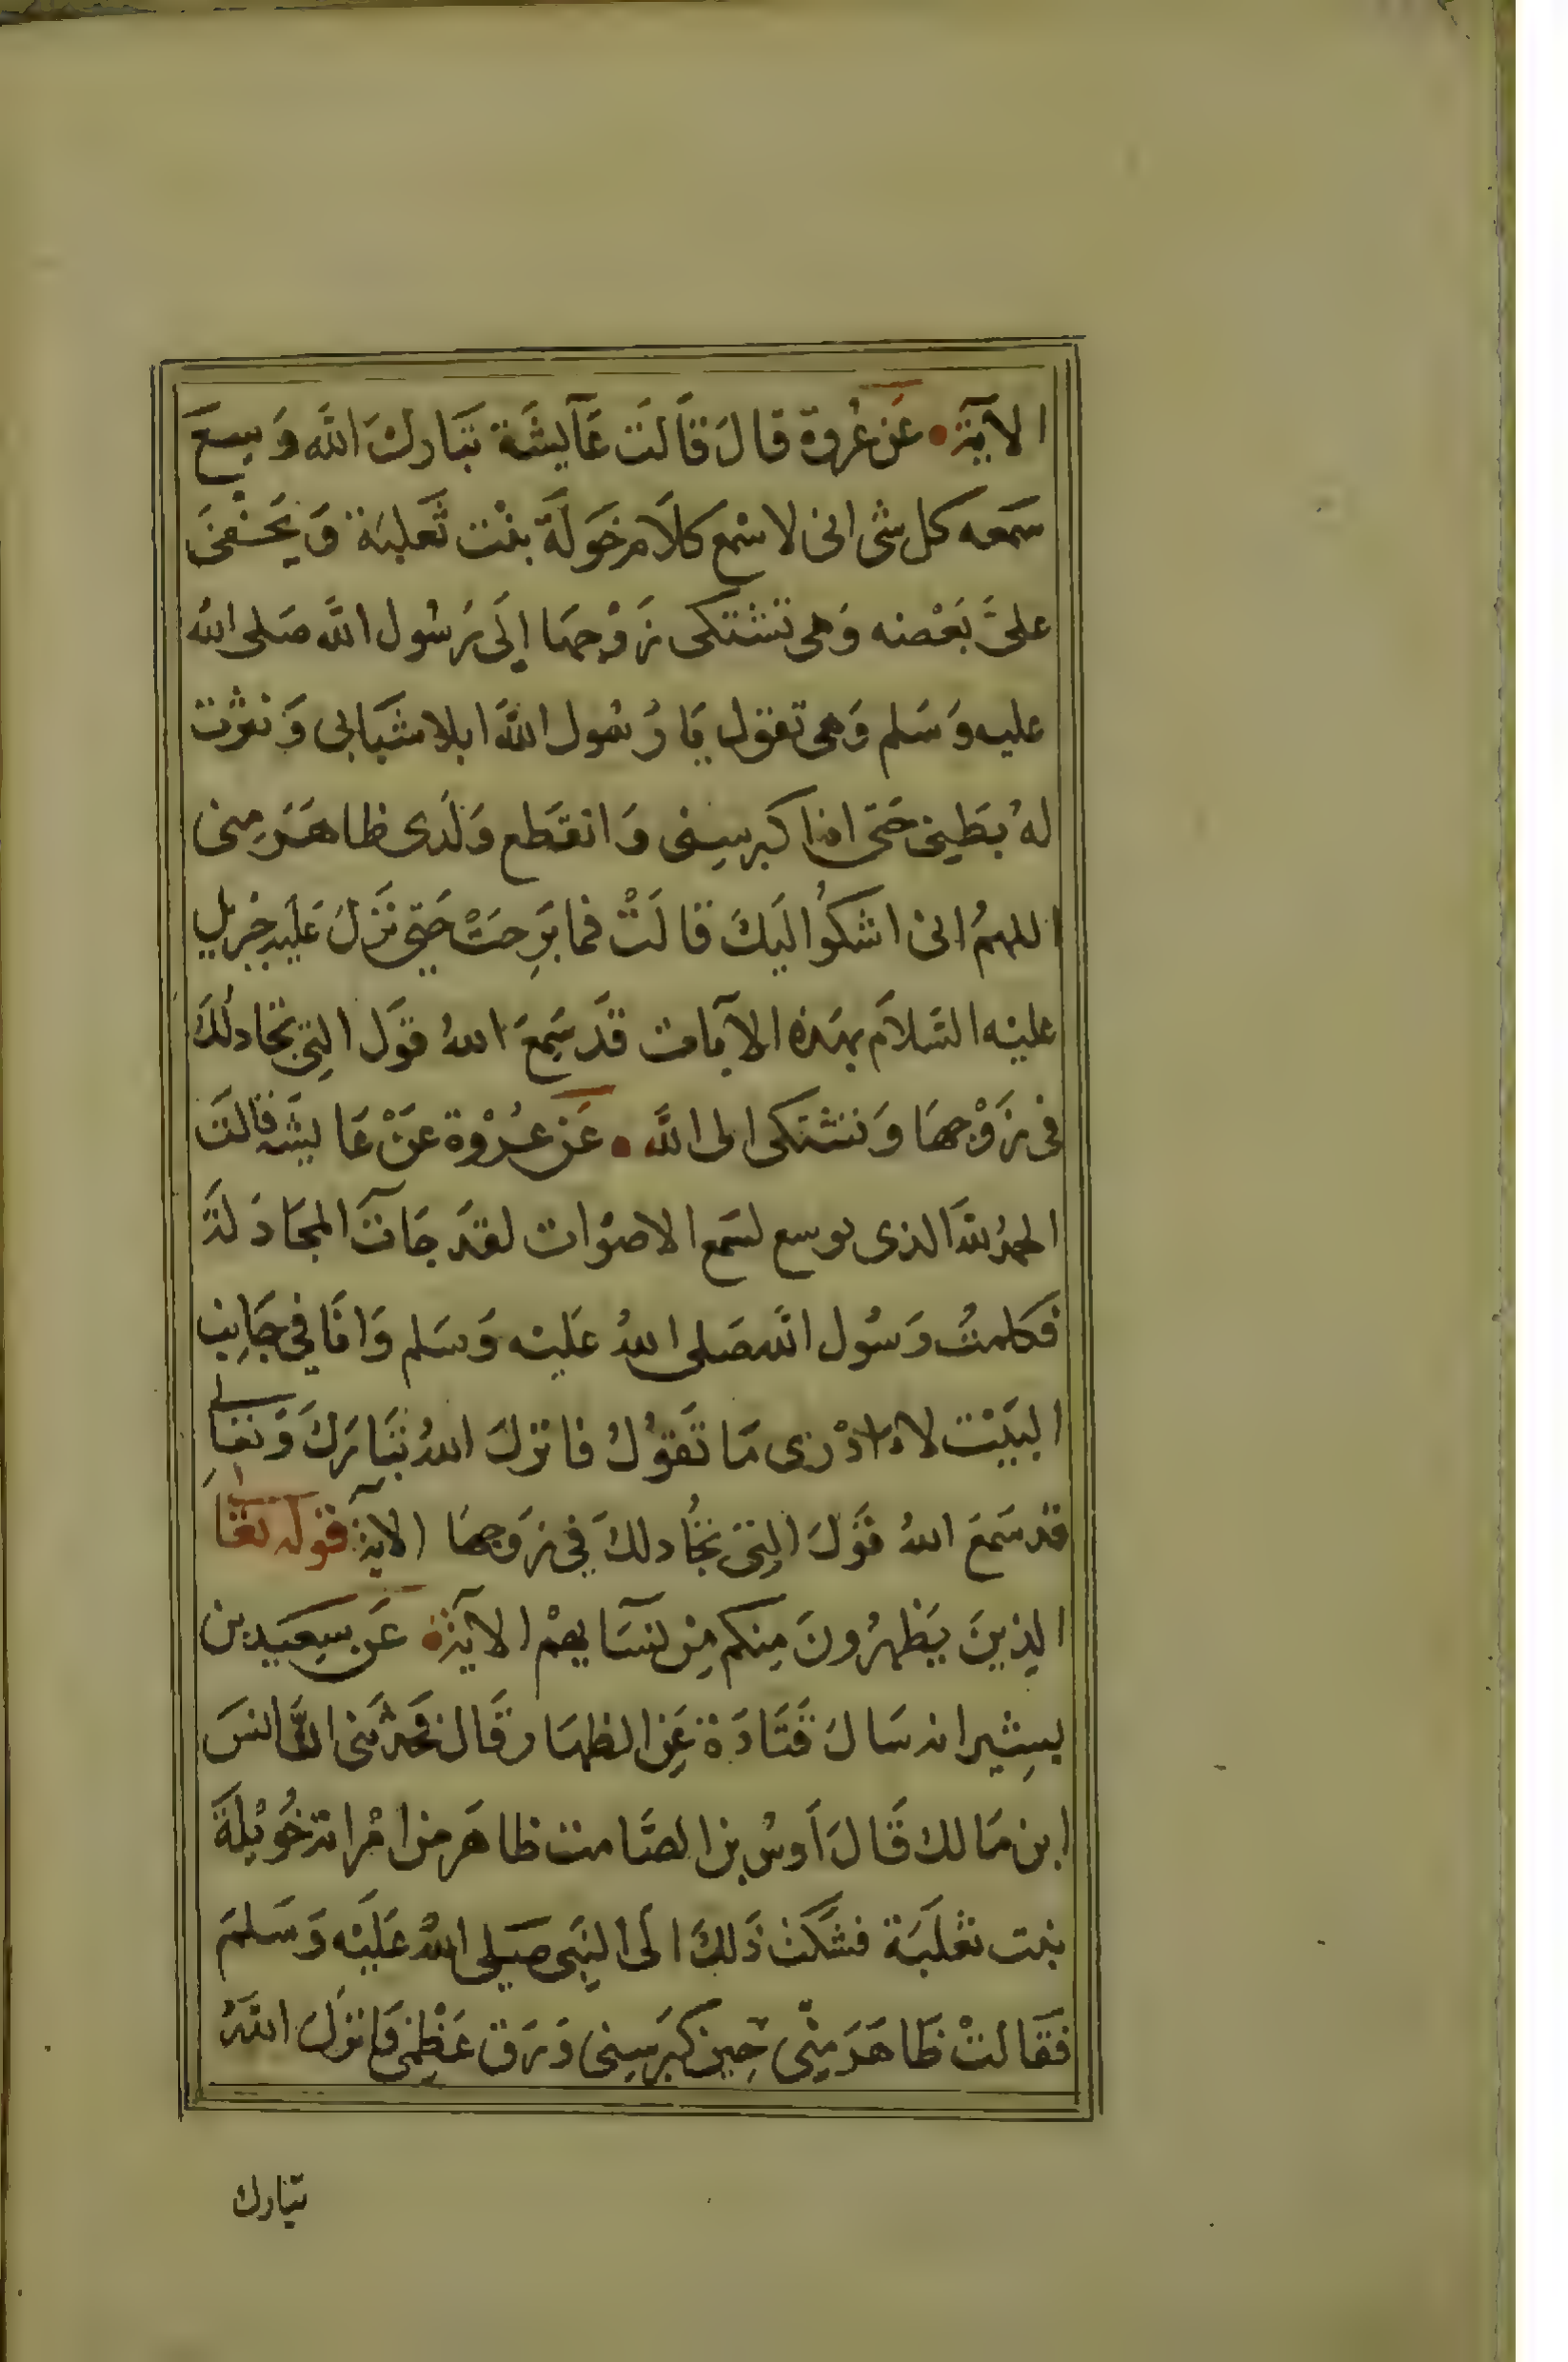 الآية • عَن عُروة قالَ قَالَت عَآيشَة تبَاركَ اللَّه وَسِعَ
سَمعه كل شى انى لاسْمع كَلاَم خَولَة بنْت ثَعلبَة وَيَخفَى
علىَّ بَعْضه وَهى تشتكى زَوْجهَا إلَى رَسُول اللَّه صَلى الله
عليه وَسَلم وَهى تقول يَا رسُول اللَّه ابلا شبَابى وَنثرت
لهُ بَطنِى حَتى اذا كبر سِنى وَانقَطع وَلَدى ظاهَرَ مِنى
اللهمُ انى اشكُوا اليَكَ قَالَتْ فما بَرِحَتْ حَتى نَزلَ عَليه جبريل
عليْه السَّلاَم بهَذه الآيات قَد سَمِعَ اللهُ قَول التِى تجَادلُكَ
فى زَوْجهَا وَتشتكى الى اللَّه • عَن عُرْوة عَنْ عَايشه قالَت
الحمدُ للَّه الذى يوسع لسَمع الاصوَات لقد جَاءَت المجَادَلة
فكلمتُ رَسُول اللَّه صَلى اللهُ عَليْه وَسَلم وَانَا في جَانِب
البَيْت لا ادْرِى مَا تَقولُ فانزلَ اللهُ تبَاركَ وَتعَالى
قد سَمعَ اللهُ قَولَ التِى تجَادلكَ فِي زَوجهَا الاية قوله تعَالى
الذِينَ يَظهرُونَ مِنكم مِن نسَآيهمْ الآية عَن سِعَيد بن
بشِير انه سَالَ قَتَادَة عَنِ الظهَار قَال فحَدثَنى انَّ انسَ
ابن مَالك قَالَ أوسُ بن الصَّامت ظاهَر من امْراته خُوَيْلَة
بنت ثعلَبَة فشَكَت ذَلكَ الَى النبِى صَلى اللهُ عَلَيْه وَسَلمَ
فَقَالتْ ظَاهَرَ مِنِّى حِين كبَر سِنى وَرَق عَظْمِى فَانزلَ اللَّهُ
تبَارك